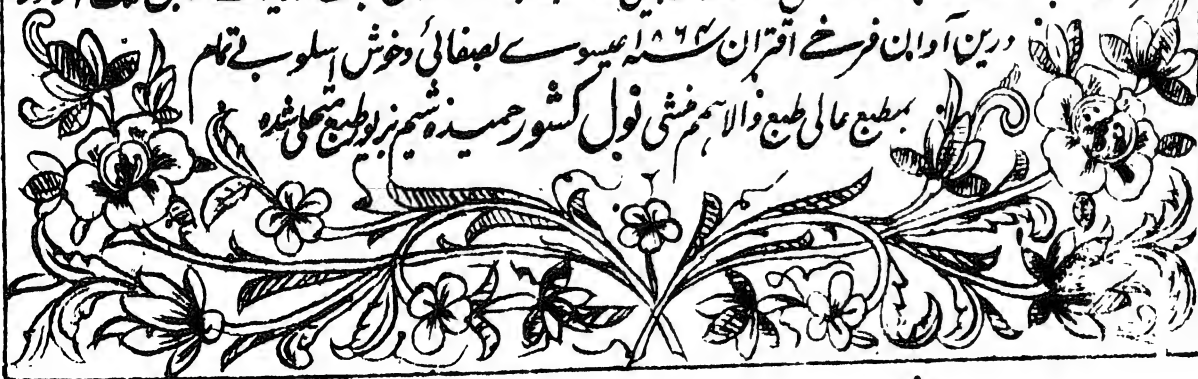 درین آوان فرخے اقتران ۱۸۶۴ عیسوے لصفائی وخوش اسلوبے تمام
بمطبع عالی طبع والا ہمم منشی نول کشور حمیدہ شیم بزیور طبع متحلی شدہ